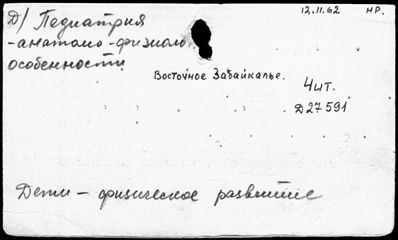 Д) Педиатрия
12.11.62 НР.
-анатомо-физиол.
особенности
Восточное Забайкалье.
Чит.
Д27591
Дети - физическое развитие